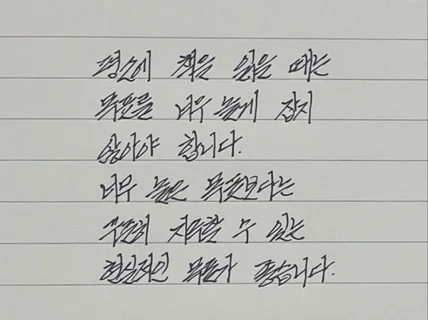 평소에 책을 읽을 때는
목표를 너무 높게 잡지
않아야 합니다.
너무 높은 목표보다는
꾸준히 지속할 수 있는
현실적인 목표가 좋습니다.